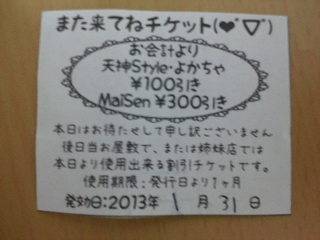 また来てねチケット(❤ˇ∇ˇ)
お会計より
天神Style・よかちゃ
¥100引き
MaiSen ¥300引き
本日はお待たせして申し訳ございません
後日当お屋敷で、または姉妹店では
本日より使用出来る割引チケットです。
使用期限:発行日より1ヶ月
発効日:2013年 1月 31日